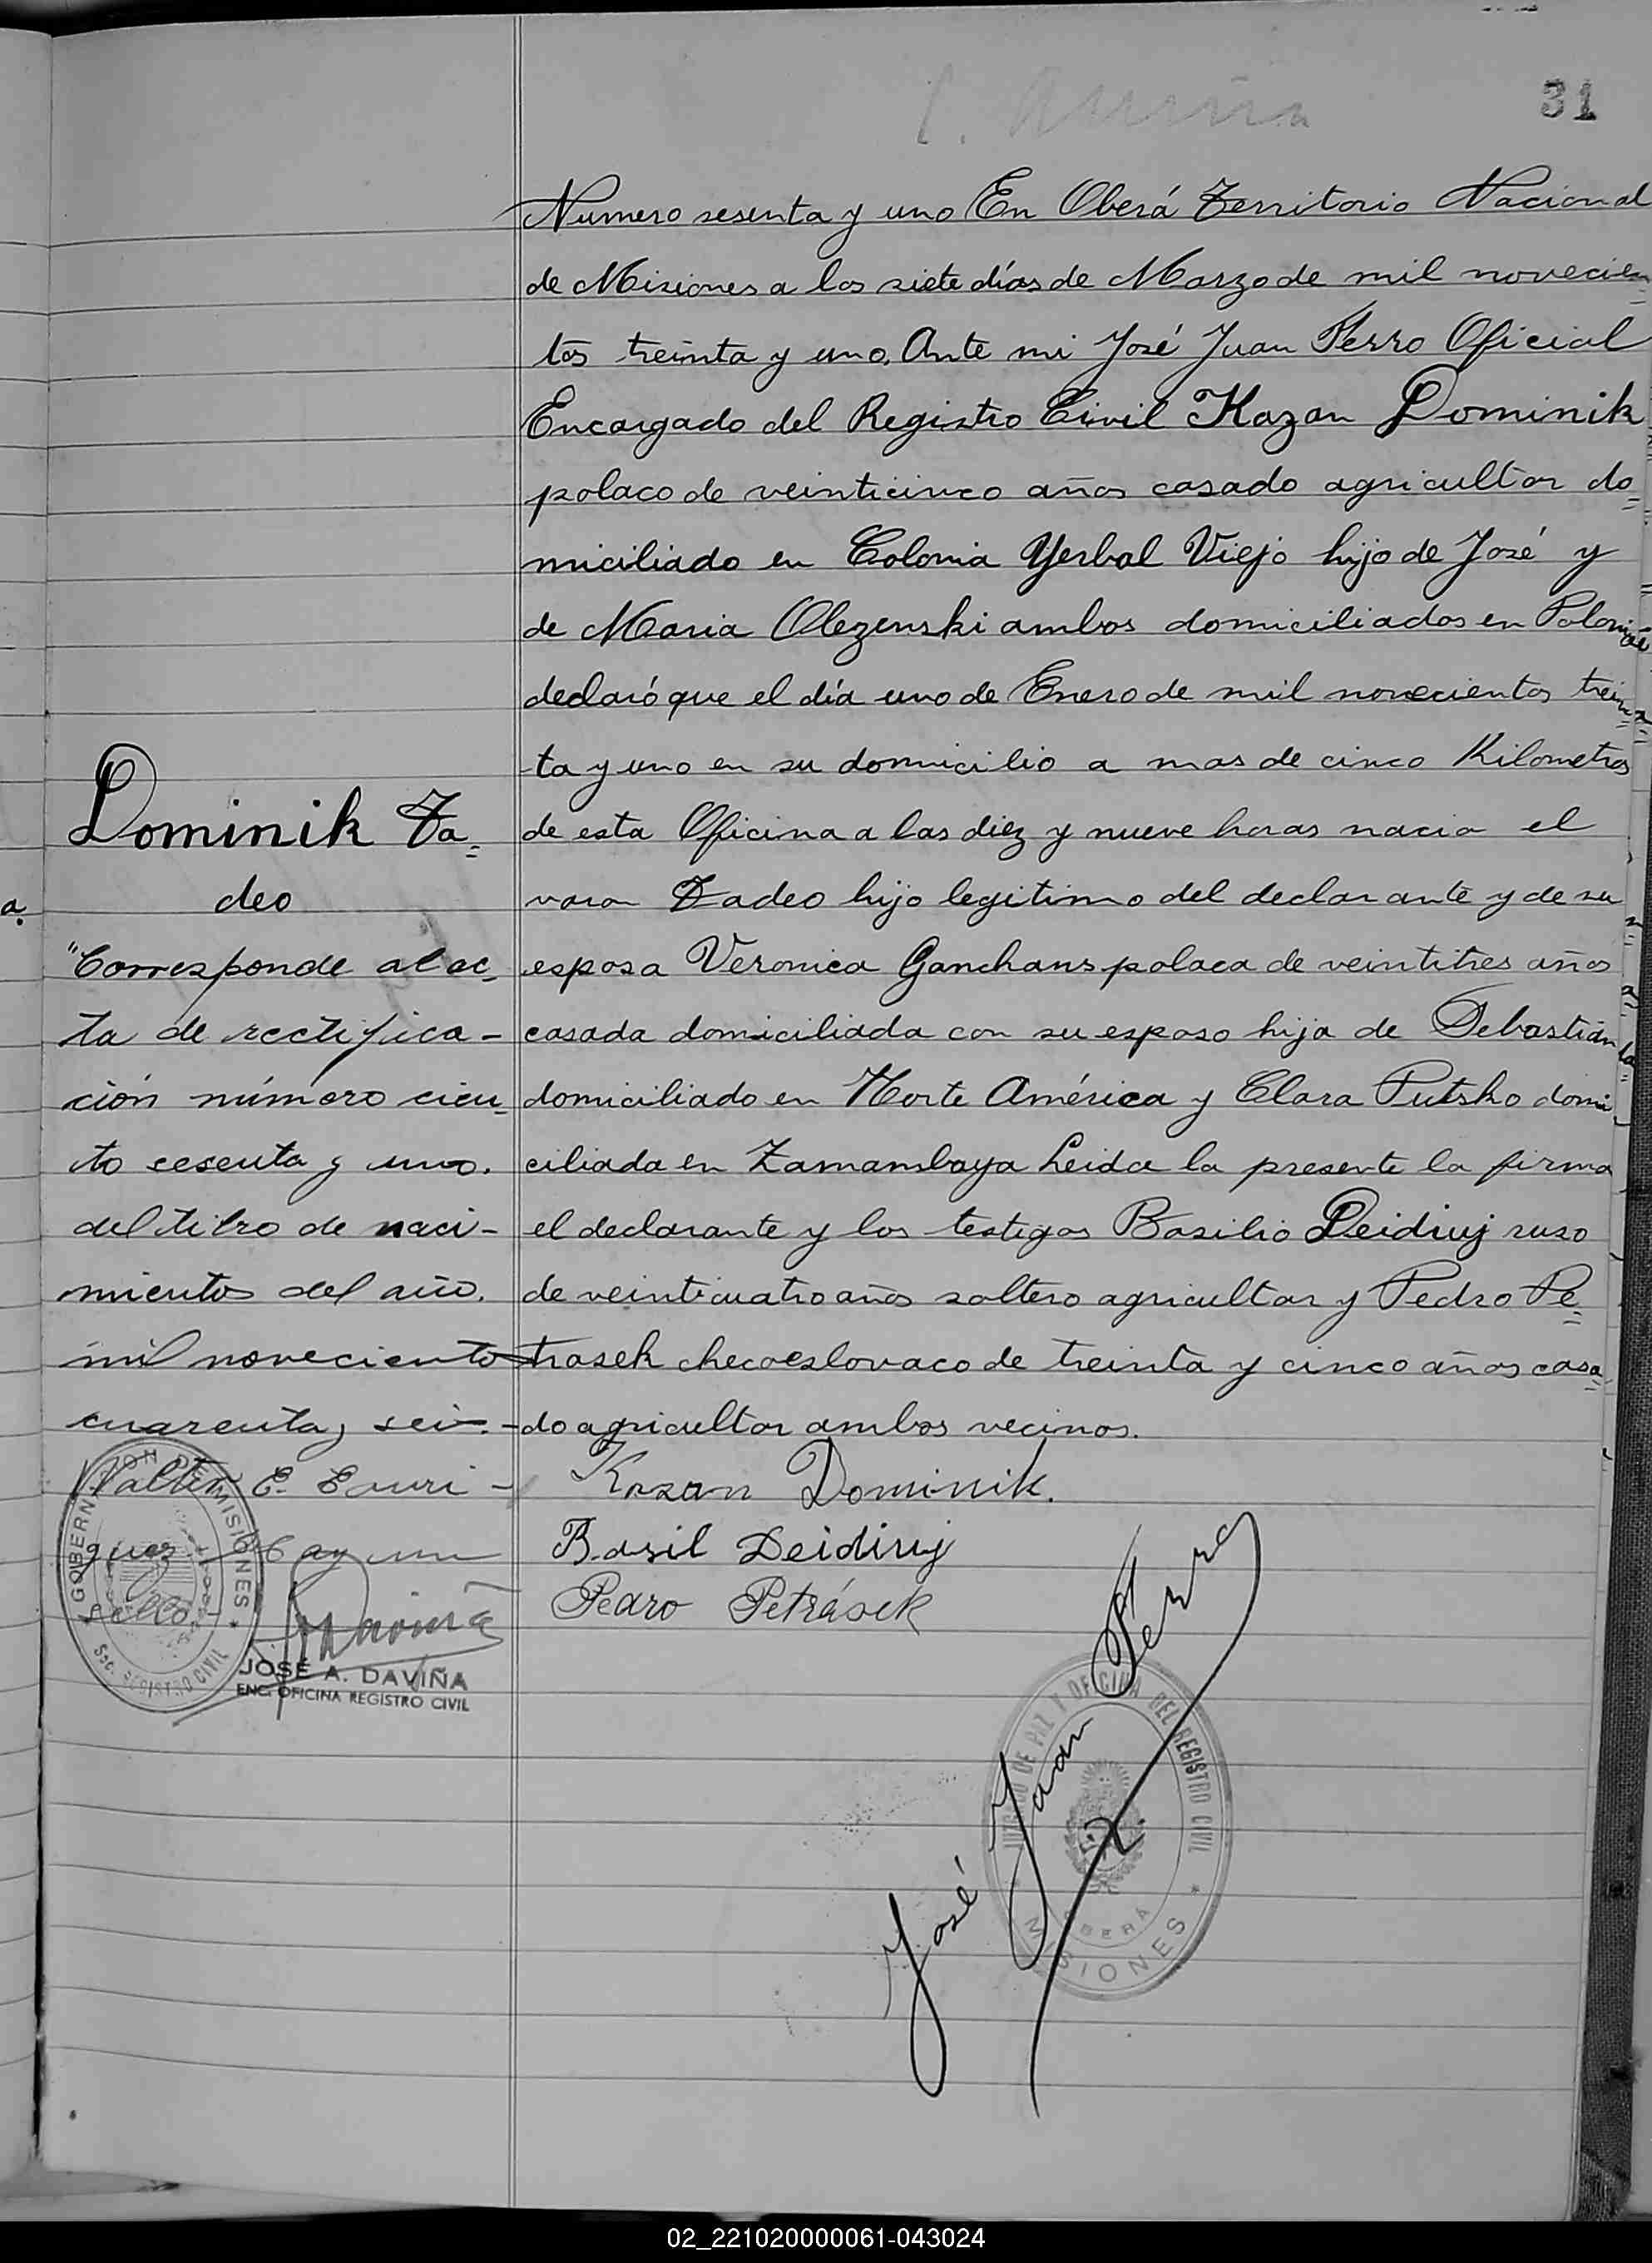 31
Numero sesenta y uno En Oberá Territorio Nacional
de Misiones a los siete días de Marzo de mil novecien=
tos treinta y uno, Ante mi José Juan Ferro Oficial
Encargado del Registro Civil Kazan Dominik
polaco de veinticinco años casado agricultor do=
miciliado en Colonia Yerbal Viejo hijo de José y
de Maria Olezenski ambos domiciliados en Polonia
declaró que el día uno de Enero de mil novecientos trein=
ta y uno en su domicilio a mas de cinco Kilometros
de esta Oficina a las diez y nueve horas nacio el
varon Tadeo hijo legitimo del declarante y de su
esposa Veronica Ganchans polaca de veintitres años
casada domiciliada con su esposo hija de Sebastián
domiciliado en Norte América y Clara Putsko domi
ciliada en Zamambaya Leida la presente la firma
el declarante y los testigos Basilio Deidiuj ruso
de veinticuatro años soltero agricultor y Pedro Pe=
trasek checoeslovaco de treinta y cinco años casa=
do agricultor ambos vecinos.
Kazan Dominik.
Basil Deidiuj
Pedro Petrásek
José Juan Ferro
JUZGADO DE PAZ Y OFICINA DEL REGISTRO CIVIL
OBERÁ
MISIONES
Dominik Ta=
deo
"Corresponde al ac=
ta de rectifica-
ción número cien=
to sesenta y uno.
del libro de naci-
mientos del año.
mil novecientos
cuarenta y seis.-
Walter E.
guez Hay un
sello
GOBERNACION DE MISIONES
Sec. REGISTRO CIVIL
JOSÉ A. DAVIÑA
ENC. OFICINA REGISTRO CIVIL
02_221020000061-043024